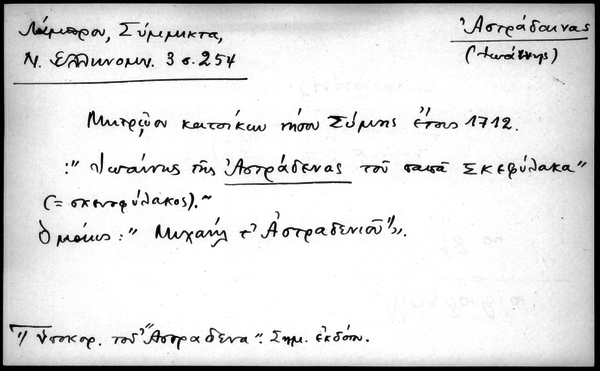 Λάμπρου, Σύμμικτα,
Ν. Ελληνομν. 3 σ. 254
Ἀστράδαινας
(Ἰωάννης)
Μητρῷον κατοίκων νήσου Σύμης ἔτους 1712.
:"Ἰωάννης τῆς Ἀστράδενας τοῦ παπᾶ Σκεφύλακα"
(= σκευοφύλακος).~
Ὁμοίως: "Μιχαήλ τ' Ἀστραδενιοῦ 1)".
1) Ὑποκορ. τοῦ "Ἀστραδενα". Σημ. ἐκδότ.